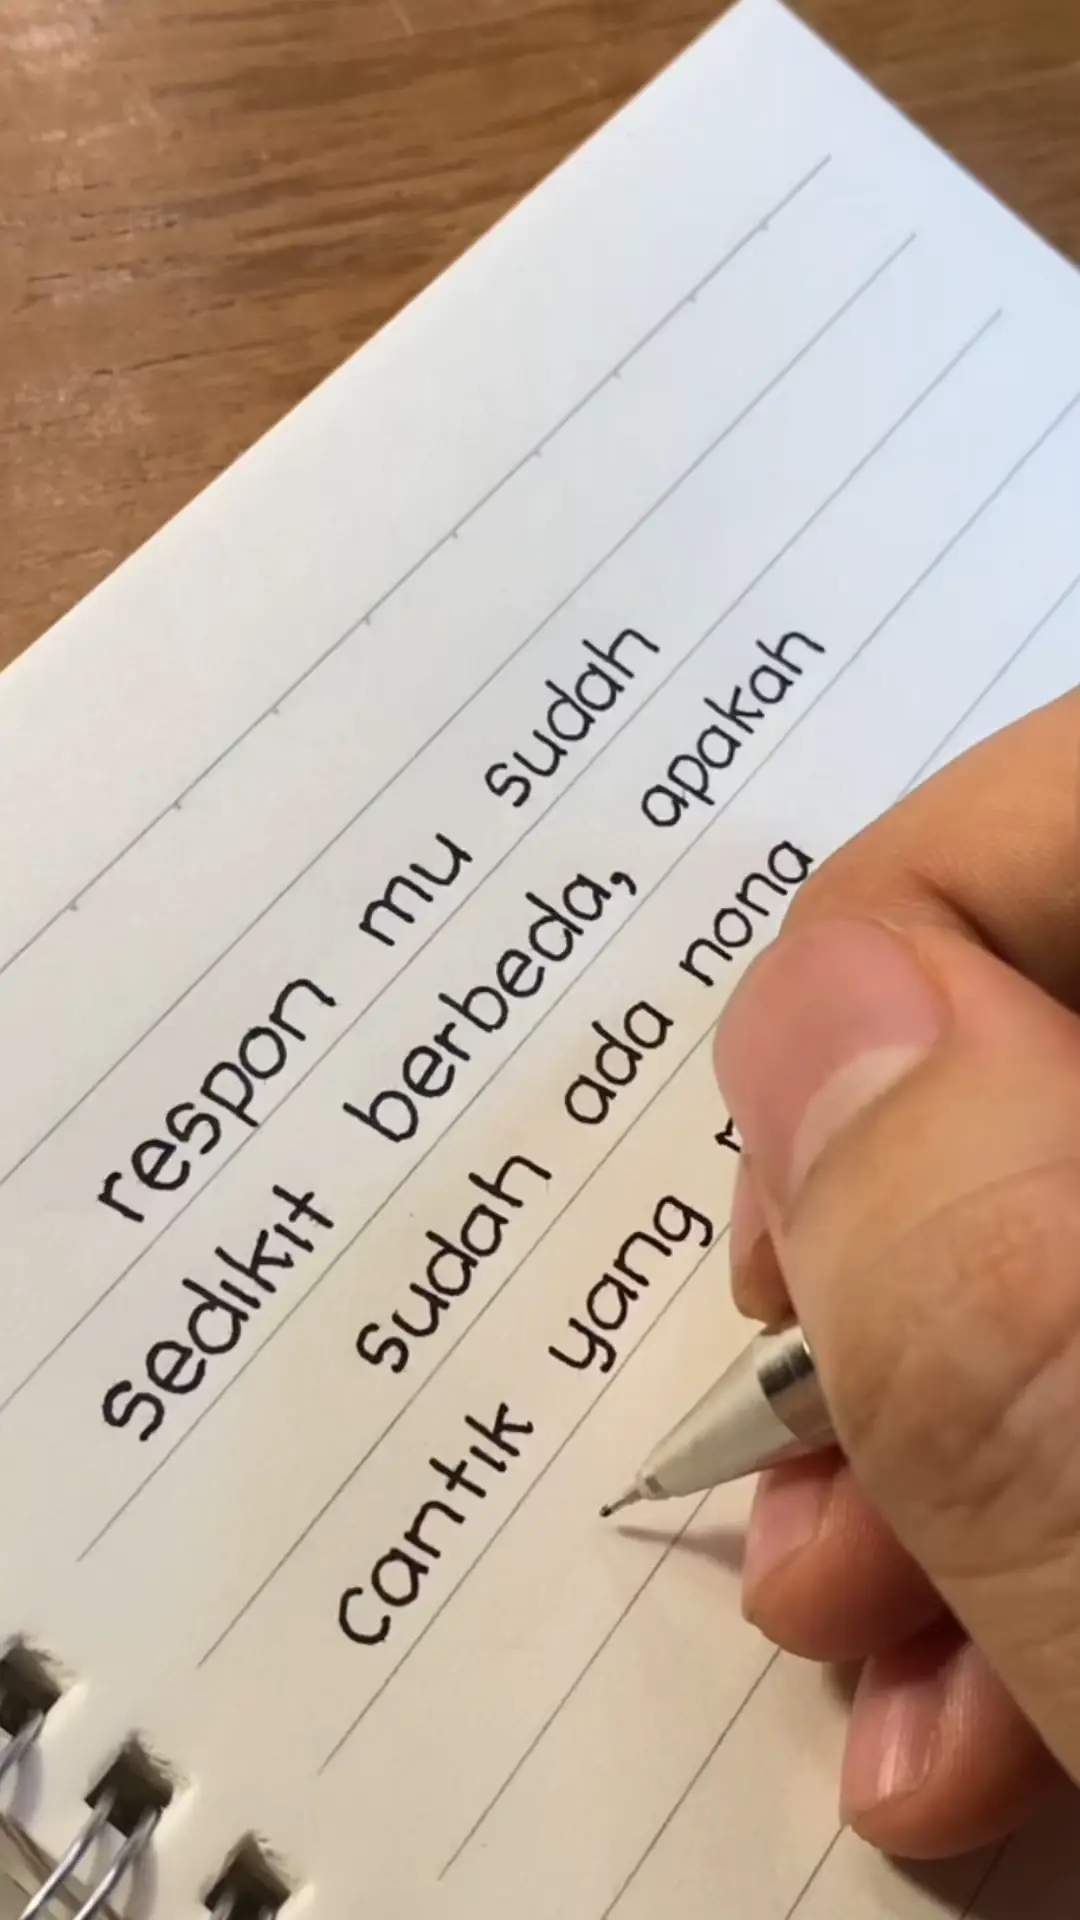 respon mu sudah
sedikit berbeda, apakah
sudah ada nona
cantik yang